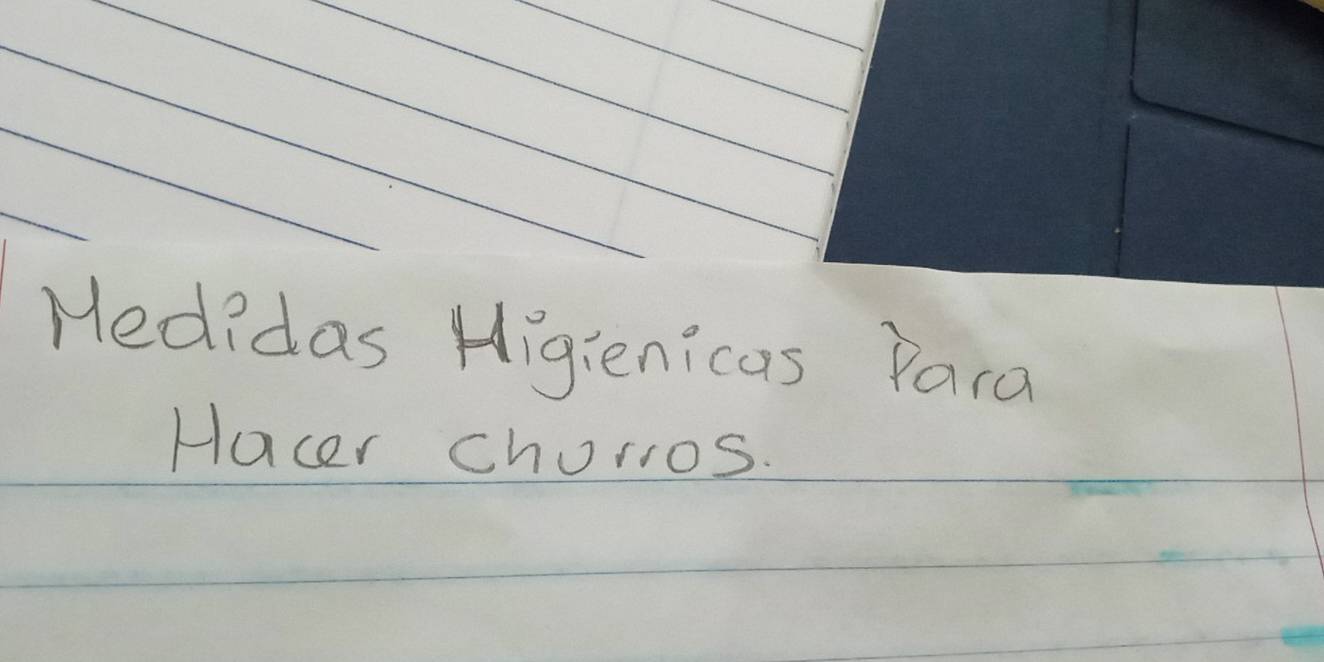 Medidas Higienicas Para
Hacer churros.